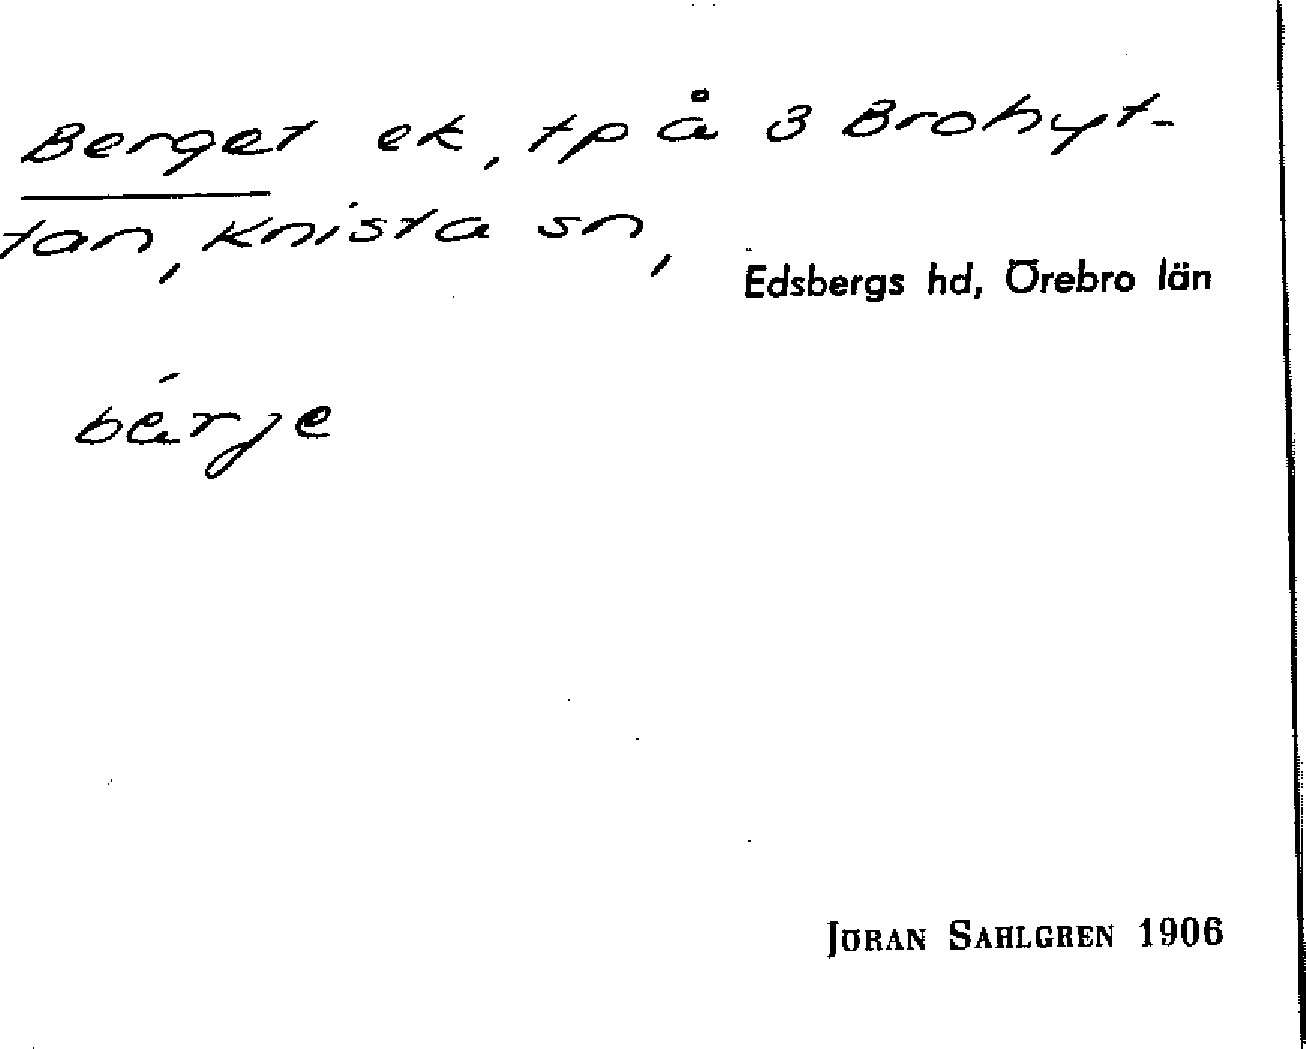 Berget ek, tp å 3 Brohyt-
tan, Knista sn,
Edsbergs hd, Örebro län
bérje
JÖRAN SAHLGREN 1906